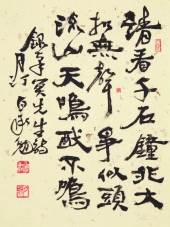 請看千石鐘非大
扣無聲爭似頭
流山天鳴猶不鳴
先生詩
月汀